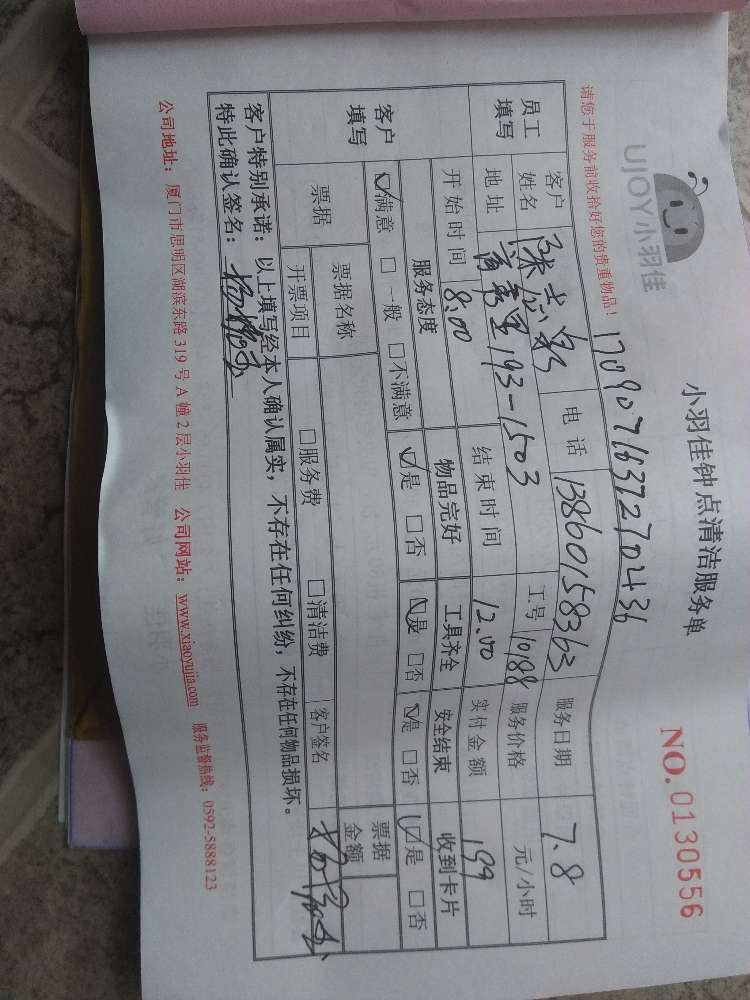 UJOY小羽佳
小羽佳钟点清洁服务单
NO.0130556
请您于服务前收拾好您的贵重物品！
员工填写
客户姓名
电话 13860158363
服务日期 7.8
地址 193-1503
工号 10188
服务价格 元/小时
开始时间 8:00
结束时间 12.00
实付金额 199
客户填写
服务态度 物品完好 工具齐全 安全结束 收到卡片
☑满意 □一般 □不满意 ☑是 □否 ☑是 □否 ☑是 □否 ☑是 □否
票据
票据名称
票据金额
开票项目 □服务费 □清洁费 客户签名
客户特别承诺：以上填写经本人确认属实，不存在任何纠纷，不存在任何物品损坏。
特此确认签名：
公司地址：厦门市思明区湖滨东路319号A幢2层小羽佳 公司网站：www.xiaoyujia.com 服务监督热线：0592-5888123